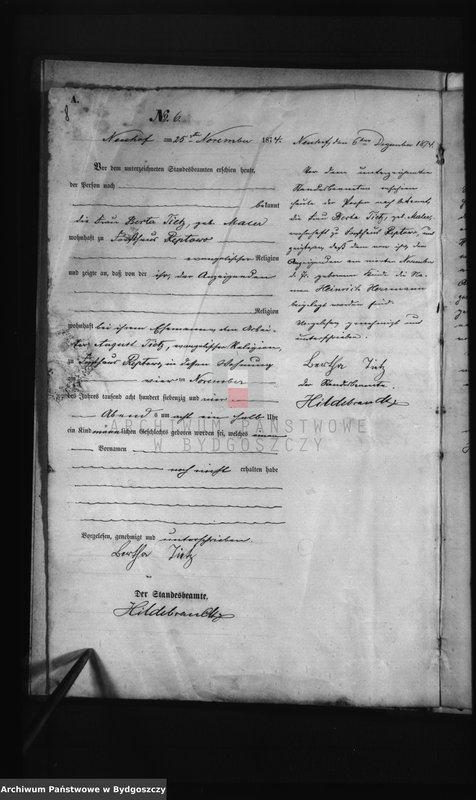 A.
8
No 6.
Neuhof am 25ten November 1874.
Vor dem unterzeichneten Standesbeamten erschien heute,
der Person nach
bekannt
die Frau Berta Tietz, geb. Maier
wohnhaft zu Forsthaus Reptowo
evangelischer Religion
und zeigte an, daß von der ihr, der Anzeigenden
Religion
wohnhaft bei ihrem Ehemanne, dem Arbei-
ter August Tietz, evangelischer Religion,
zu Forsthaus Reptowo, in dessen Wohnung
am vier November
des Jahres tausend acht hundert siebenzig und vier
Abends um acht ein halb Uhr
ein Kind männlichen Geschlechts geboren worden sei, welches einen
Vornamen
noch nicht erhalten habe
Vorgelesen, genehmigt und unterschrieben.
Bertha Tietz
Der Standesbeamte.
Hildebrandt
Neuhof, den 6ten Dezember 1874.
Vor dem unterzeichneten
Standesbeamten erschien
heute der Person nach bekannt,
die Frau Berta Tietz, geb. Maier,
wohnhaft zu Forsthaus Reptowo, und
zeigte an, daß dem von ihr, der
Anzeigenden am vierten November
d. J. geborenen Kinde die Na-
men Heinrich Hermann
beigelegt worden sind
Vorgelesen genehmigt und
unterschrieben.
Bertha Tietz
Der Standesbeamte.
Hildebrandt
ARCHIWUM PAŃSTWOWE
W BYDGOSZCZY
Archiwum Państwowe w Bydgoszczy